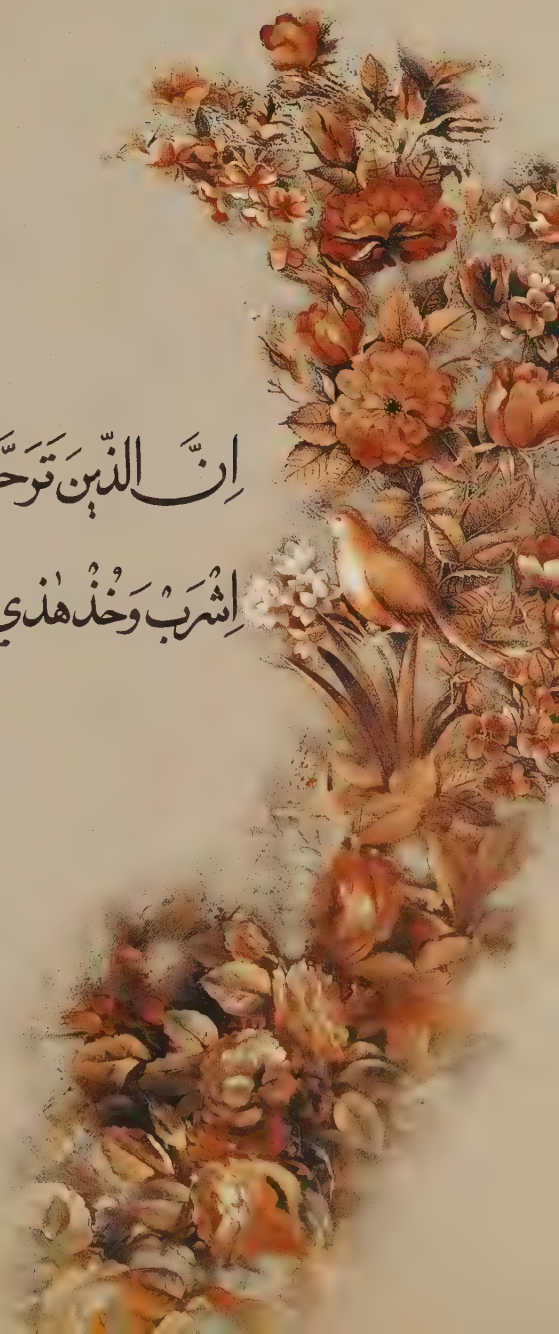 اِنَّ الذّينَ تَرَحَّ
اِشْرَبْ وَخُذْ هٰذي